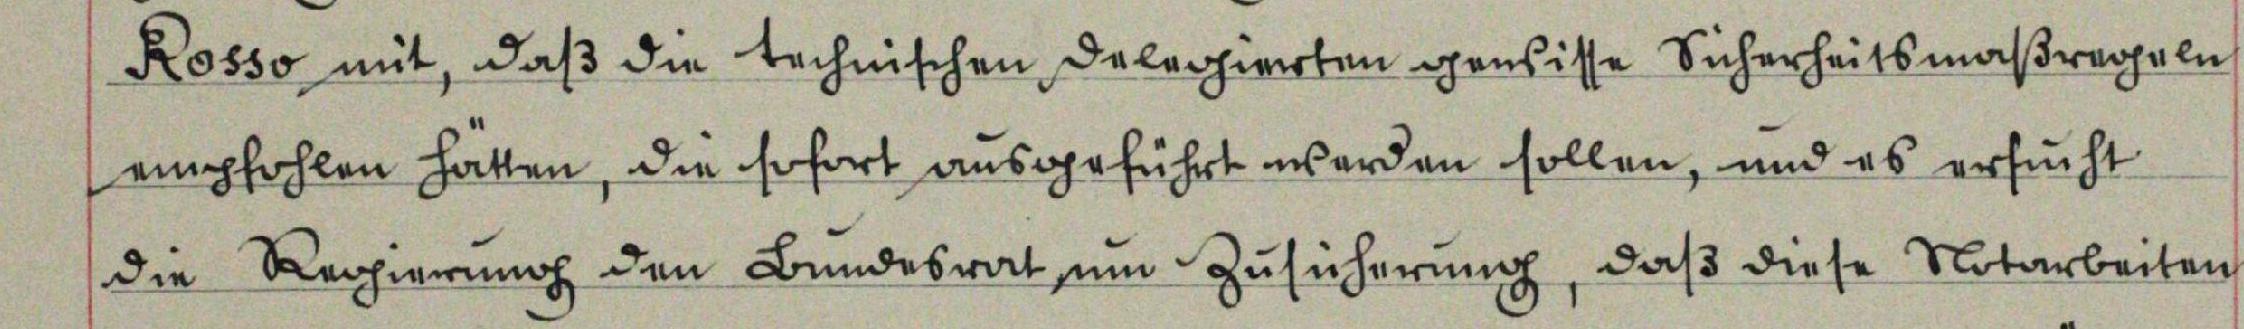 Rosso mit, daß die technischen Delegierten gewisse Sicherheitsmaßregeln
empfohlen hätten, die sofort ausgeführt werden sollen, und es ersucht
die Regierung den Bundesrat um Zusicherung, daß diese Notarbeiten